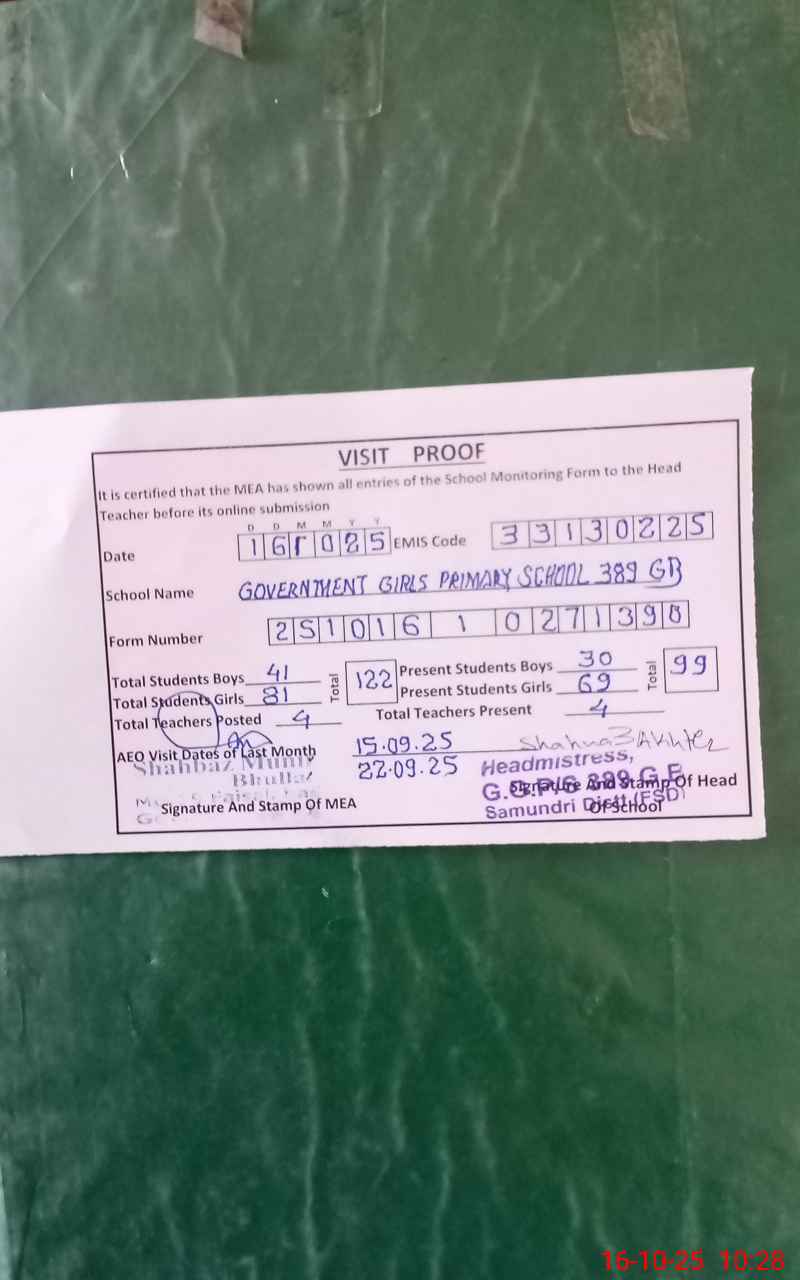 VISIT PROOF
It is certified that the MEA has shown all entries of the School Monitoring Form to the Head
Teacher before its online submission
D D M M Y Y
Date 16 1 0 2 5 EMIS Code 3 3 1 3 0 2 2 5
School Name GOVERNMENT GIRLS PRIMARY SCHOOL 389 GB
Form Number 2 5 1 0 1 6 1 0 2 7 1 3 9 0
Total Students Boys 41 Total 122 Present Students Boys 30 Total 99
Total Students Girls 81 Present Students Girls 69
Total Teachers Posted 4 Total Teachers Present 4
AEO Visit Dates of Last Month 15.09.25
22.09.25
Shahbaz
Headmistress,
G.G.P/S 389 G.B
Samundri Distt (FSD)
Signature And Stamp Of MEA
Signature And Stamp Of Head
Of School
16-10-25 10:28